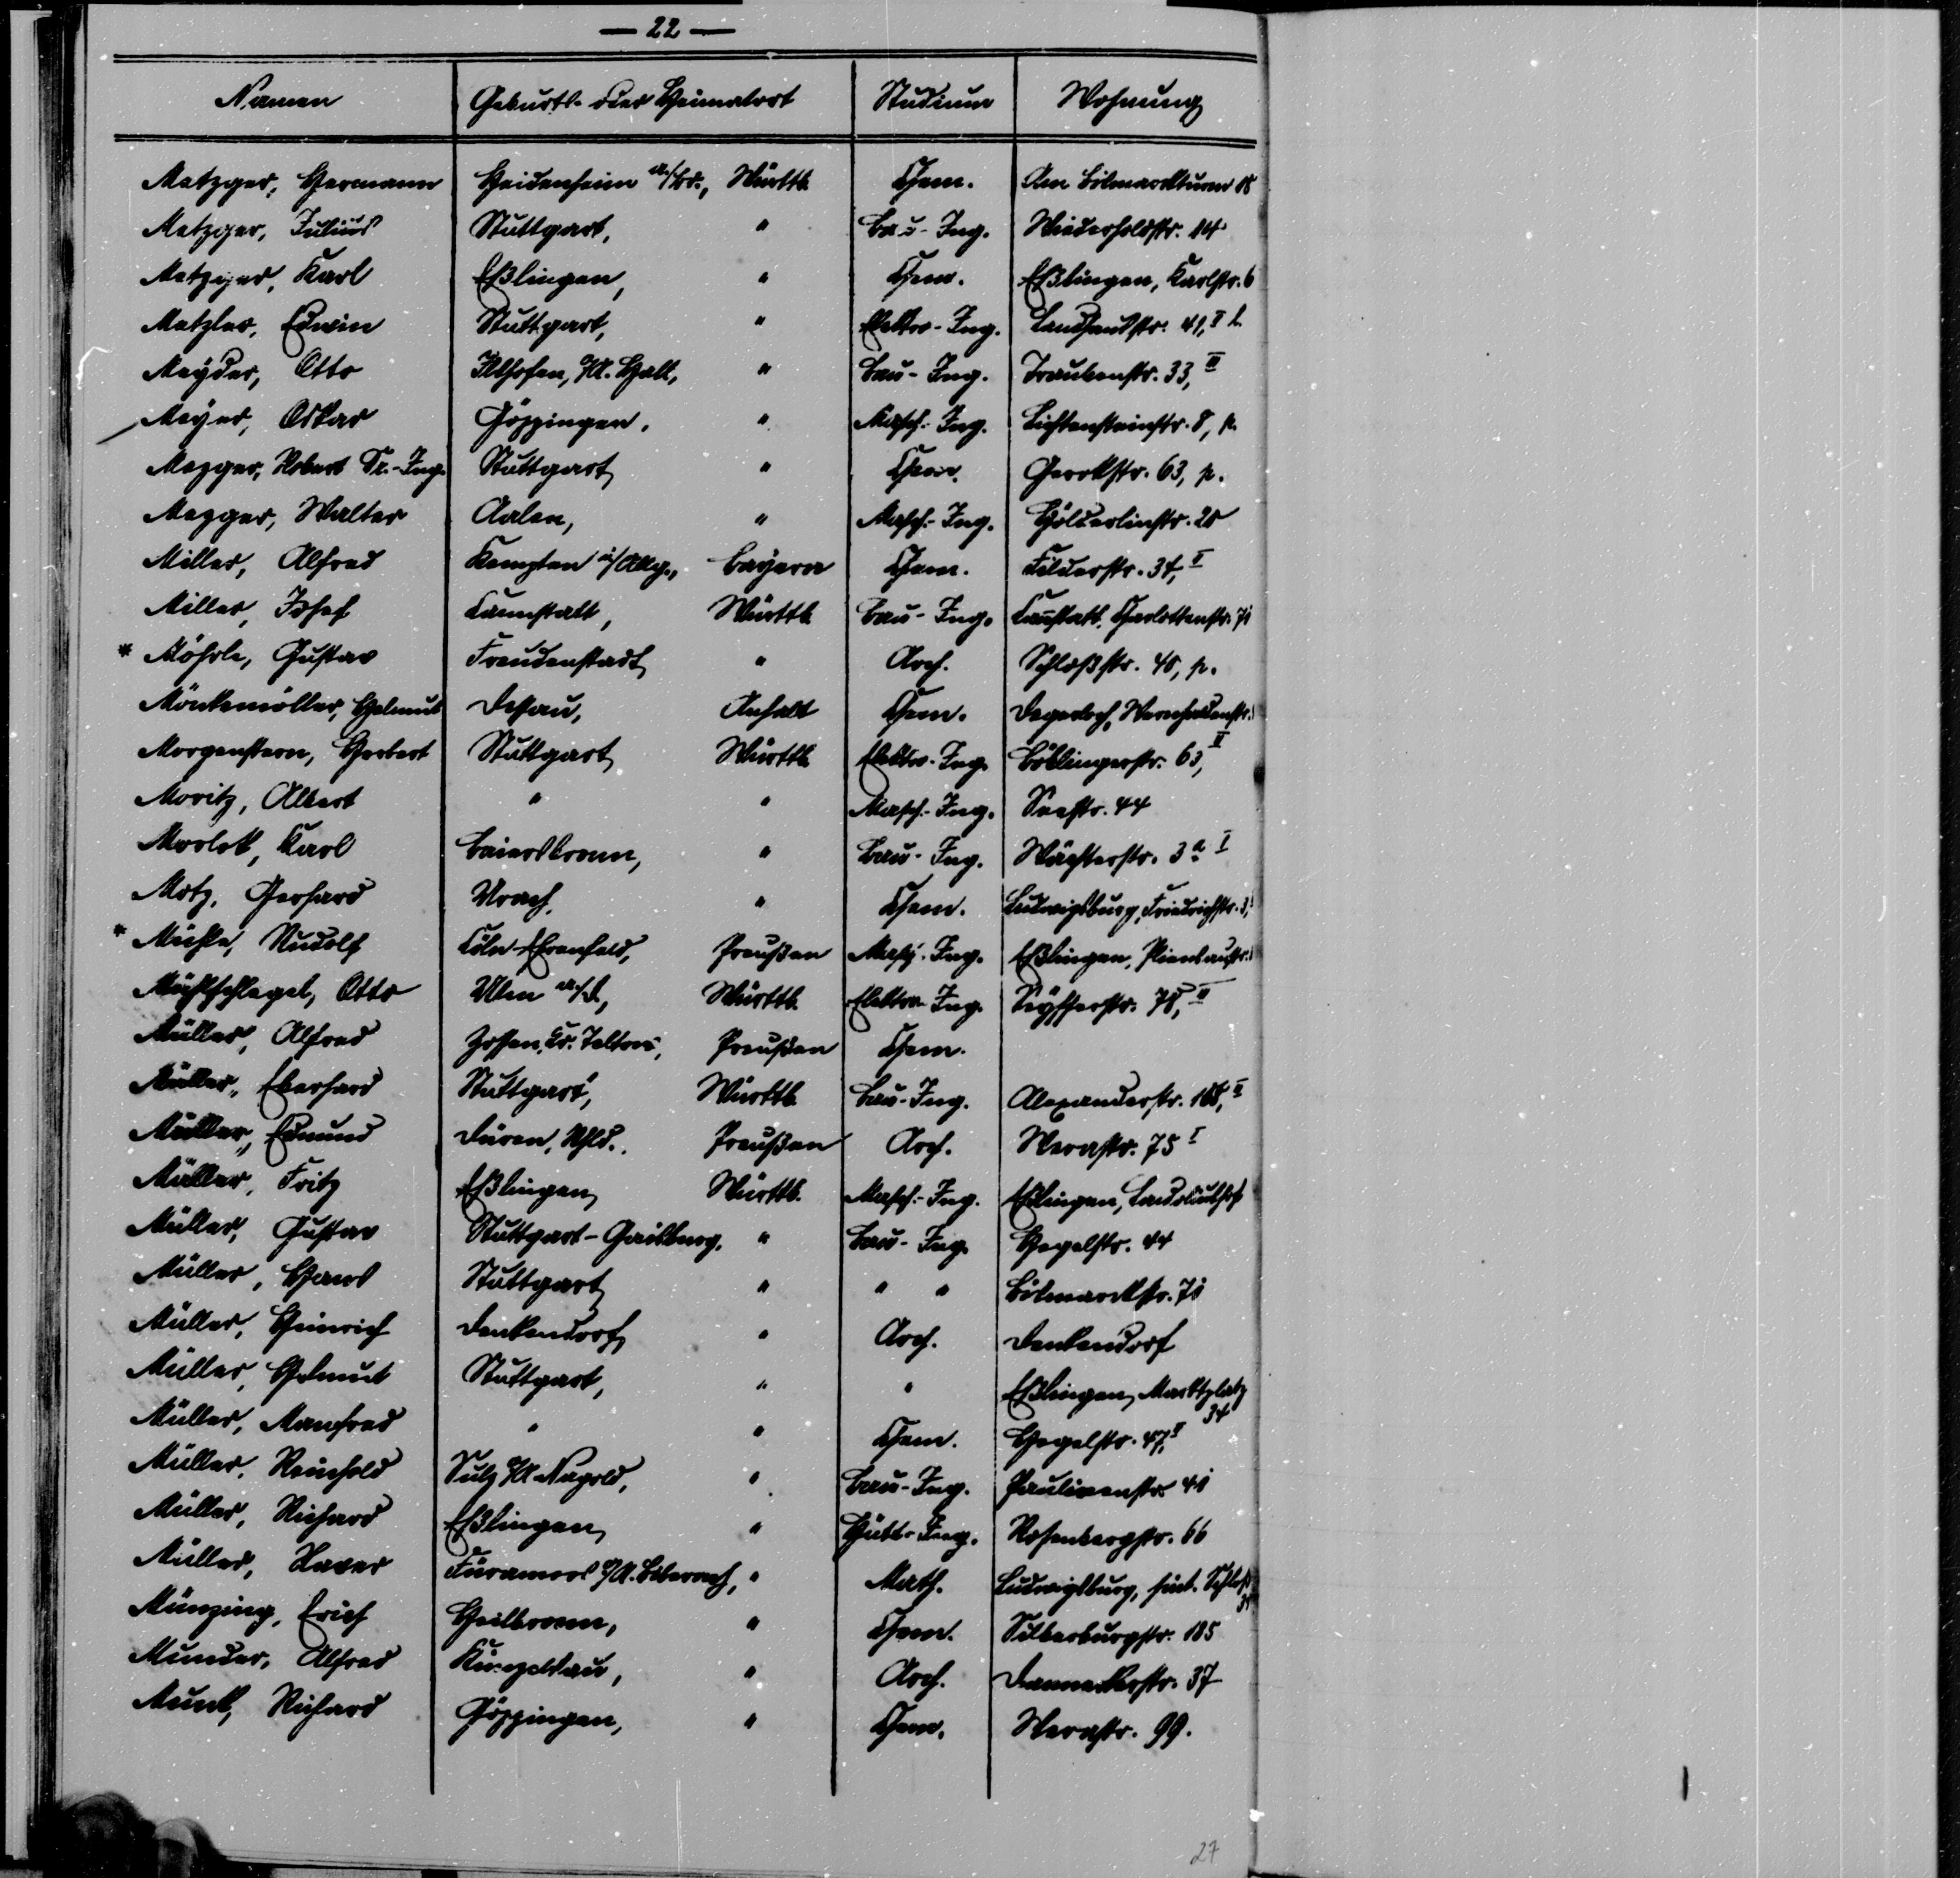 — 22 —
Namen Geburts- oder Heimatort Studium Wohnung
Metzger, Hermann Heidenheim a/Br., Württb. Chem. Am Bismarckturm 18
Metzger, Julius Stuttgart, " Bau-Ing. Wiederholdstr. 14
Metzger, Karl Eßlingen, " Chem. Eßlingen, Karlstr. 6
Metzler, Edwin Stuttgart, " Elektro-Ing. Landhausstr. 41, II l.
Meyder, Otto Ilshofen, OA. Hall, " Bau-Ing. Traubenstr. 33, III
Meyer, Oskar Göppingen, " Masch.-Ing. Lichtensteinstr. 8, p.
Mezger, Robert Dr.-Ing. Stuttgart, " Chem. Gerokstr. 63, p.
Mezger, Walter Aalen, " Masch.-Ing. Hölderlinstr. 28
Miller, Alfred Kempten i/Allg., Bayern Chem. Filderstr. 34, II
Miller, Josef Cannstatt, Württb. Bau-Ing. Cannstatt, Charlottenstr. 71
* Möhrle, Gustav Freudenstadt, " Arch. Schloßstr. 48, p.
Mönkemöller, Helmut Dessau, Anhalt Chem. Degerloch,
Morgenstern, Herbert Stuttgart, Württb. Elektro-Ing. Böblingerstr. 63, II
Moritz, Albert " " Masch.-Ing. Seestr. 44
Morlok, Karl Baiersbronn, " Bau-Ing. Wächterstr. 3 a I
Motz, Gerhard Urach, " Chem. Ludwigsburg, Friedrichstr. 3,
* Mühle, Rudolf Cöln-Ehrenfeld, Preußen Masch.-Ing. Eßlingen, Plienaustr.
Mühlschlegel, Otto Ulm a/D., Württb. Elektro-Ing. Seyfferstr. 78, II
Müller, Alfred Zossen, Kr. Teltow, Preußen Chem.
Müller, Eberhard Stuttgart, Württb. Bau-Ing. Alexanderstr. 168, II
Müller, Edmund Düren, Rhld., Preußen Arch. Werastr. 75 I
Müller, Fritz Eßlingen, Württb. Masch.-Ing. Eßlingen,
Müller, Gustav Stuttgart-Gaisburg, " Bau-Ing. Hegelstr. 44
Müller, Hans Stuttgart, " " " Bismarckstr. 71
Müller, Heinrich Denkendorf, " Arch. Denkendorf
Müller, Helmut Stuttgart, " " Eßlingen, Marktplatz
34
Müller, Manfred " " Chem. Hegelstr. 47, II
Müller, Reinhold Sulz OA. Nagold, " Bau-Ing. Paulinenstr. 41
Müller, Richard Eßlingen, " Hütt.-Ing. Rosenbergstr. 66
Müller, Xaver Füramoos OA. Biberach, " Math. Ludwigsburg, hint. Schloß
Münzing, Erich Heilbronn, " Chem. Silberburgstr. 185
Munder, Alfred Künzelsau, " Arch. Danneckerstr. 37
Munk, Richard Göppingen, " Chem. Werastr. 99.
27